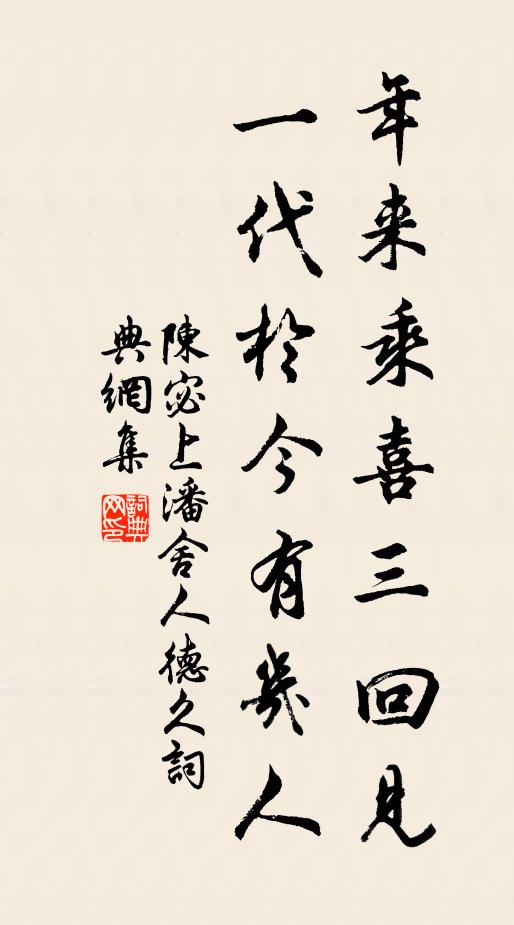 年来乘喜三回見
一代於今有幾人
陳宓上潘舍人德久詞
典網集
詞典网印